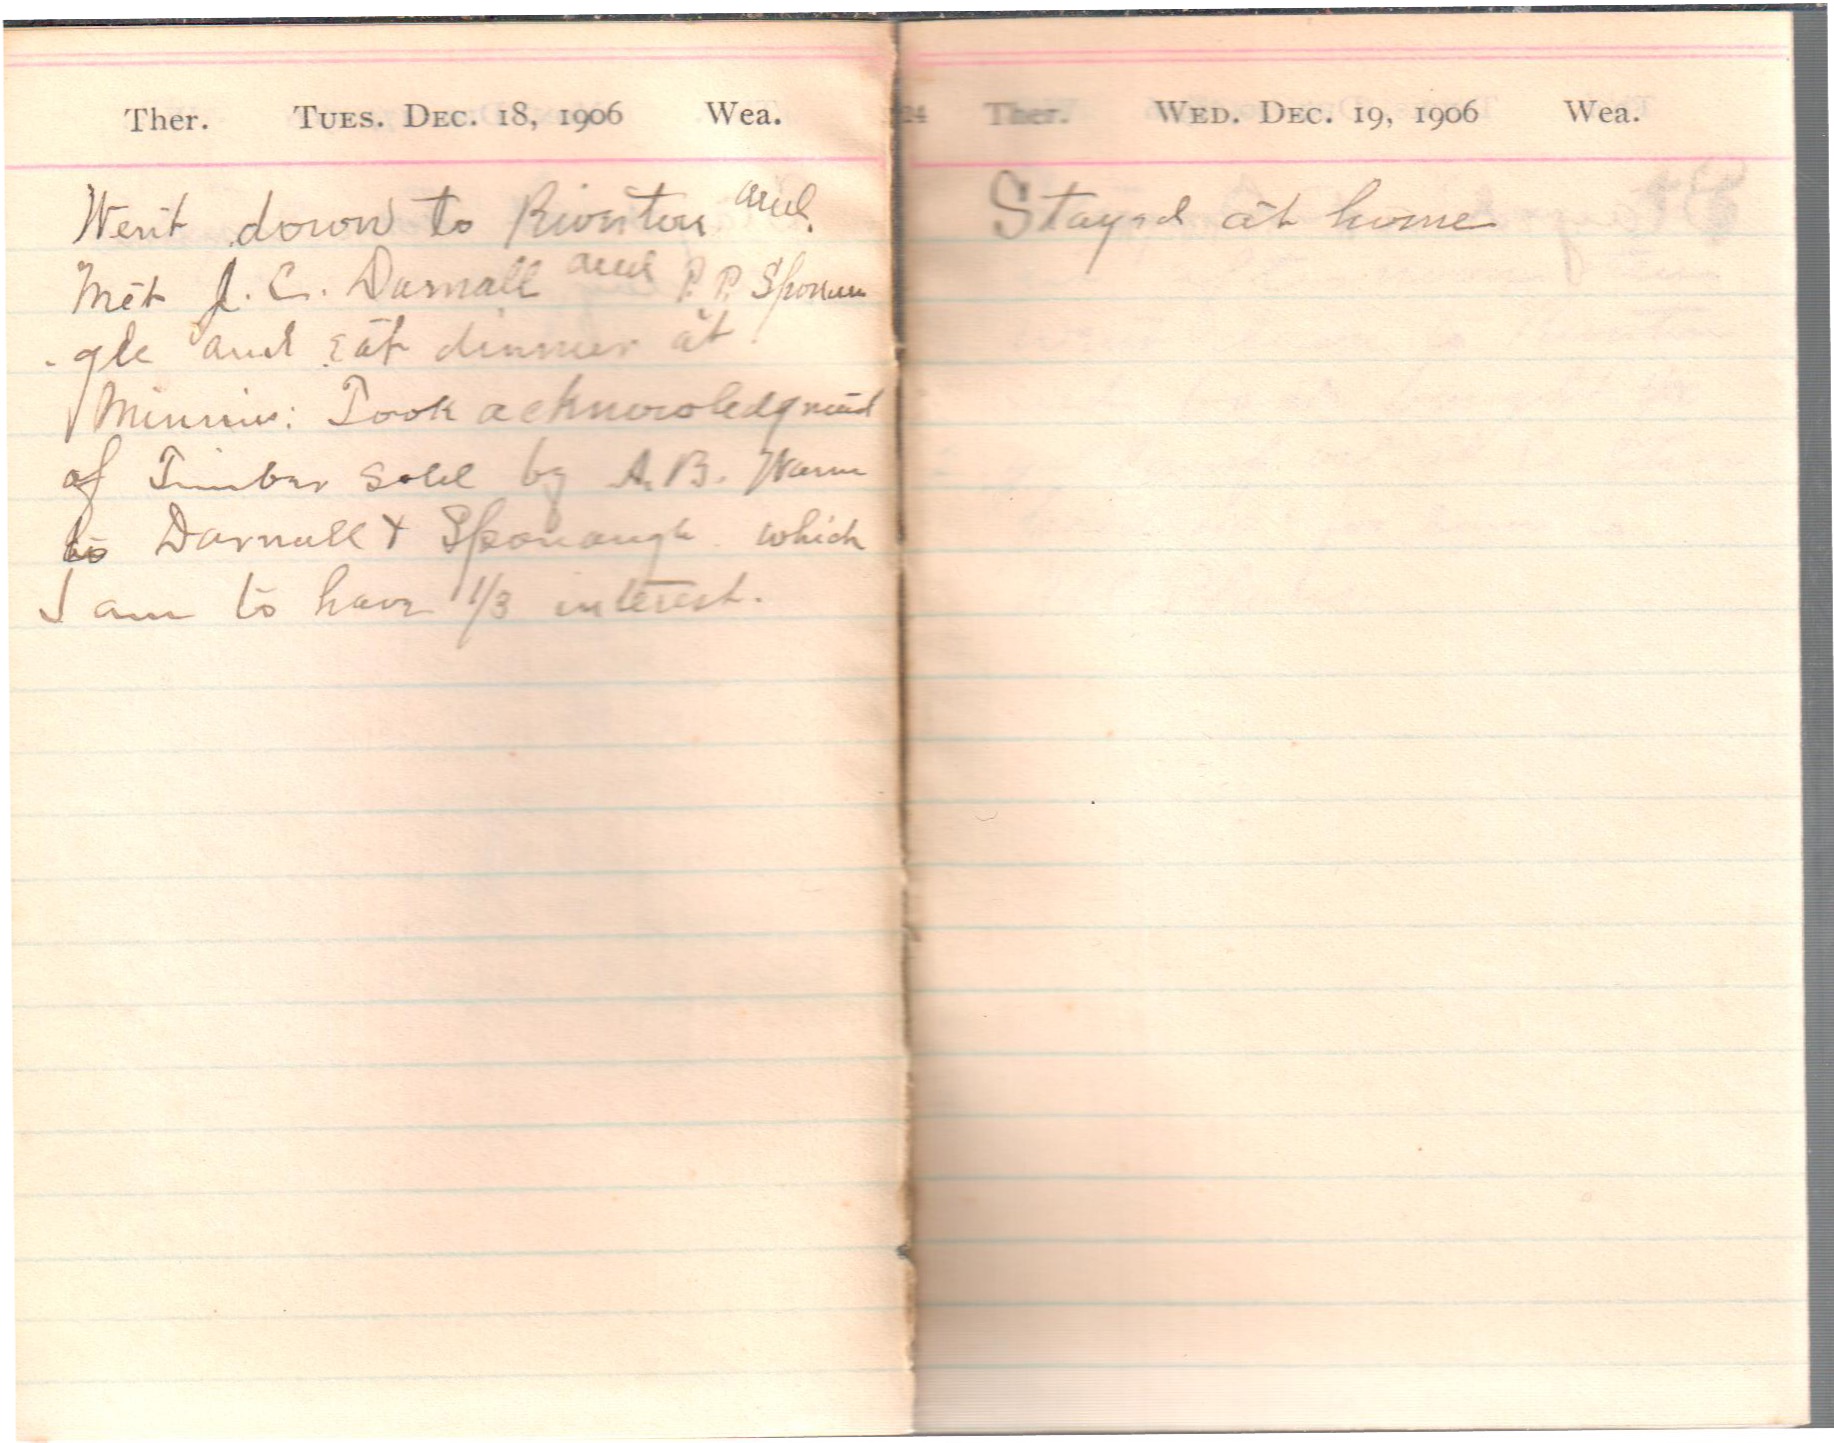 Ther. Tues. Dec. 18, 1906 Wea.
Went down to Riverton and
Met J. C. Darnall and P. P. Sponau
-gle and eat dinner at
Minnis: Took acknowledgment
of Timber sold by A. B. Warn
to Darnall & Sponaugle which
I am to have 1/3 interest.
24 Ther. Wed. Dec. 19, 1906 Wea.
Stayed at home